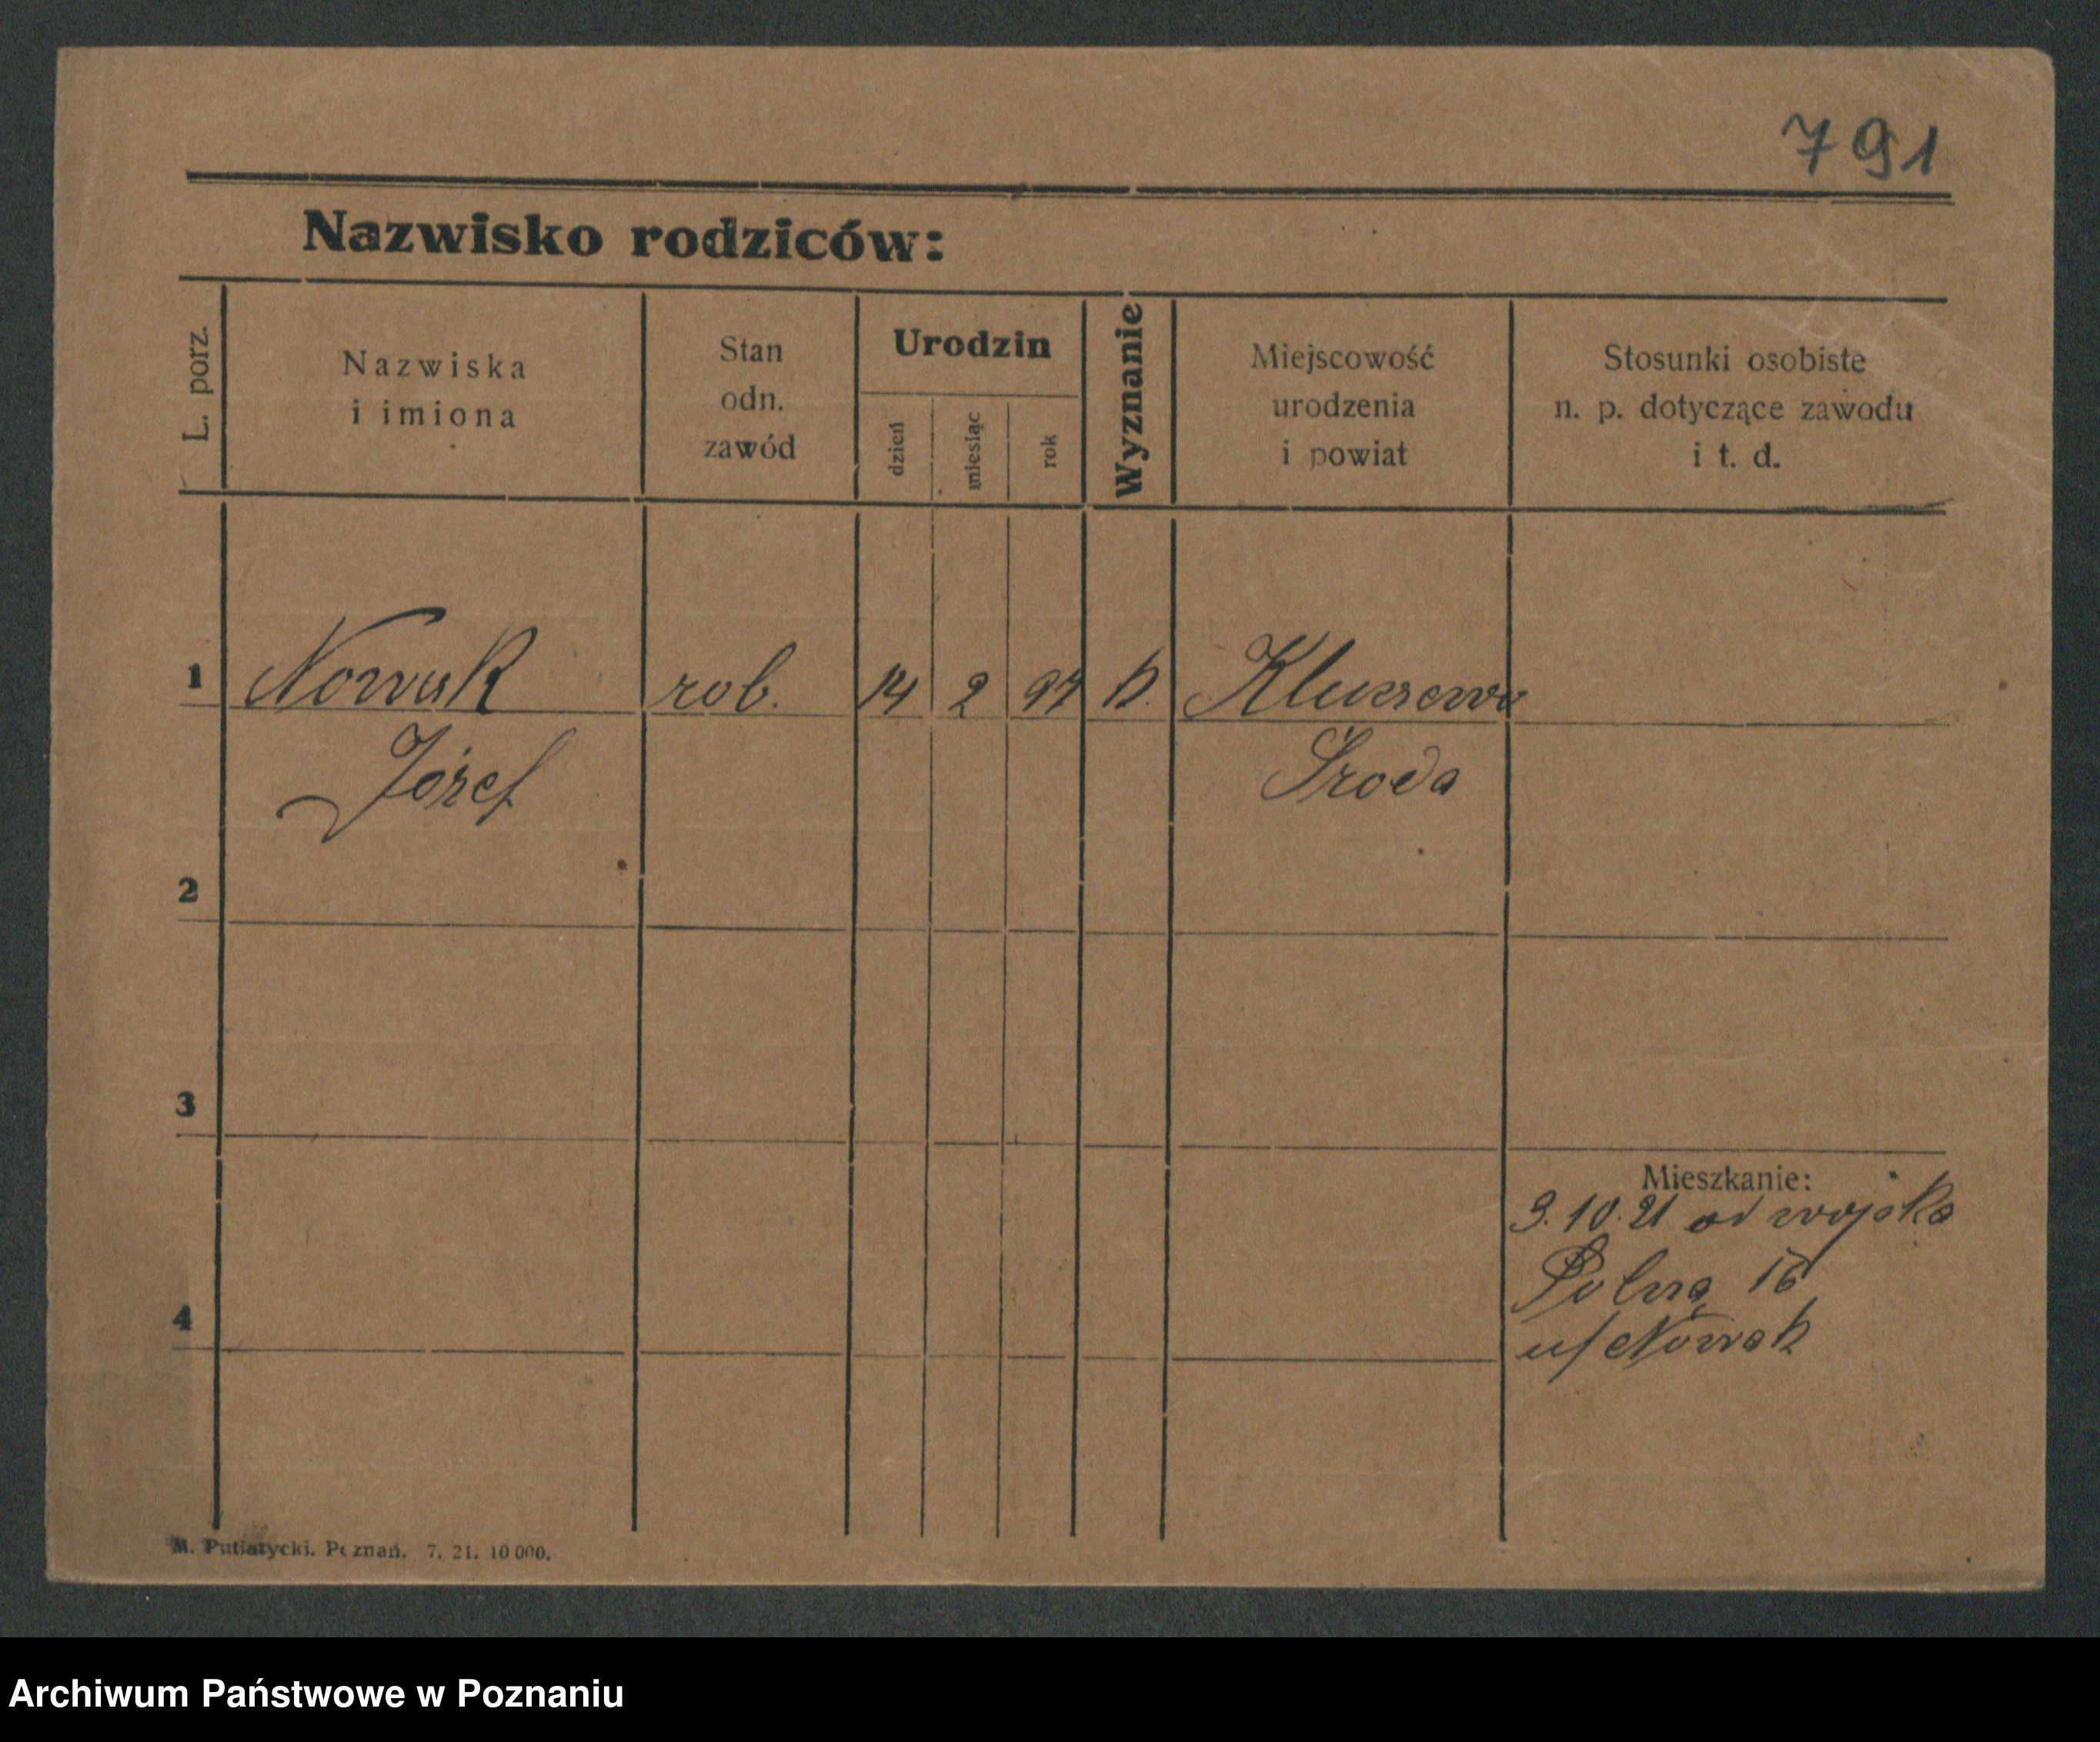 791
Nazwisko rodziców:
L. porz.
Nazwiska
i imiona
Stan
odn.
zawód
Urodzin
dzień
miesiąc
rok
Wyznanie
Miejscowość
urodzenia
i powiat
Stosunki osobiste
n. p. dotyczące zawodu
i t. d.
1 Nowak rob. 14 2 97 k. Kluszewo
Józef Środa
2
3
Mieszkanie:
3.10.21 od wojska
Polna 16
4
u/ Nowak
M. Putiatycki. Poznań. 7. 21. 10 000.
Archiwum Państwowe w Poznaniu